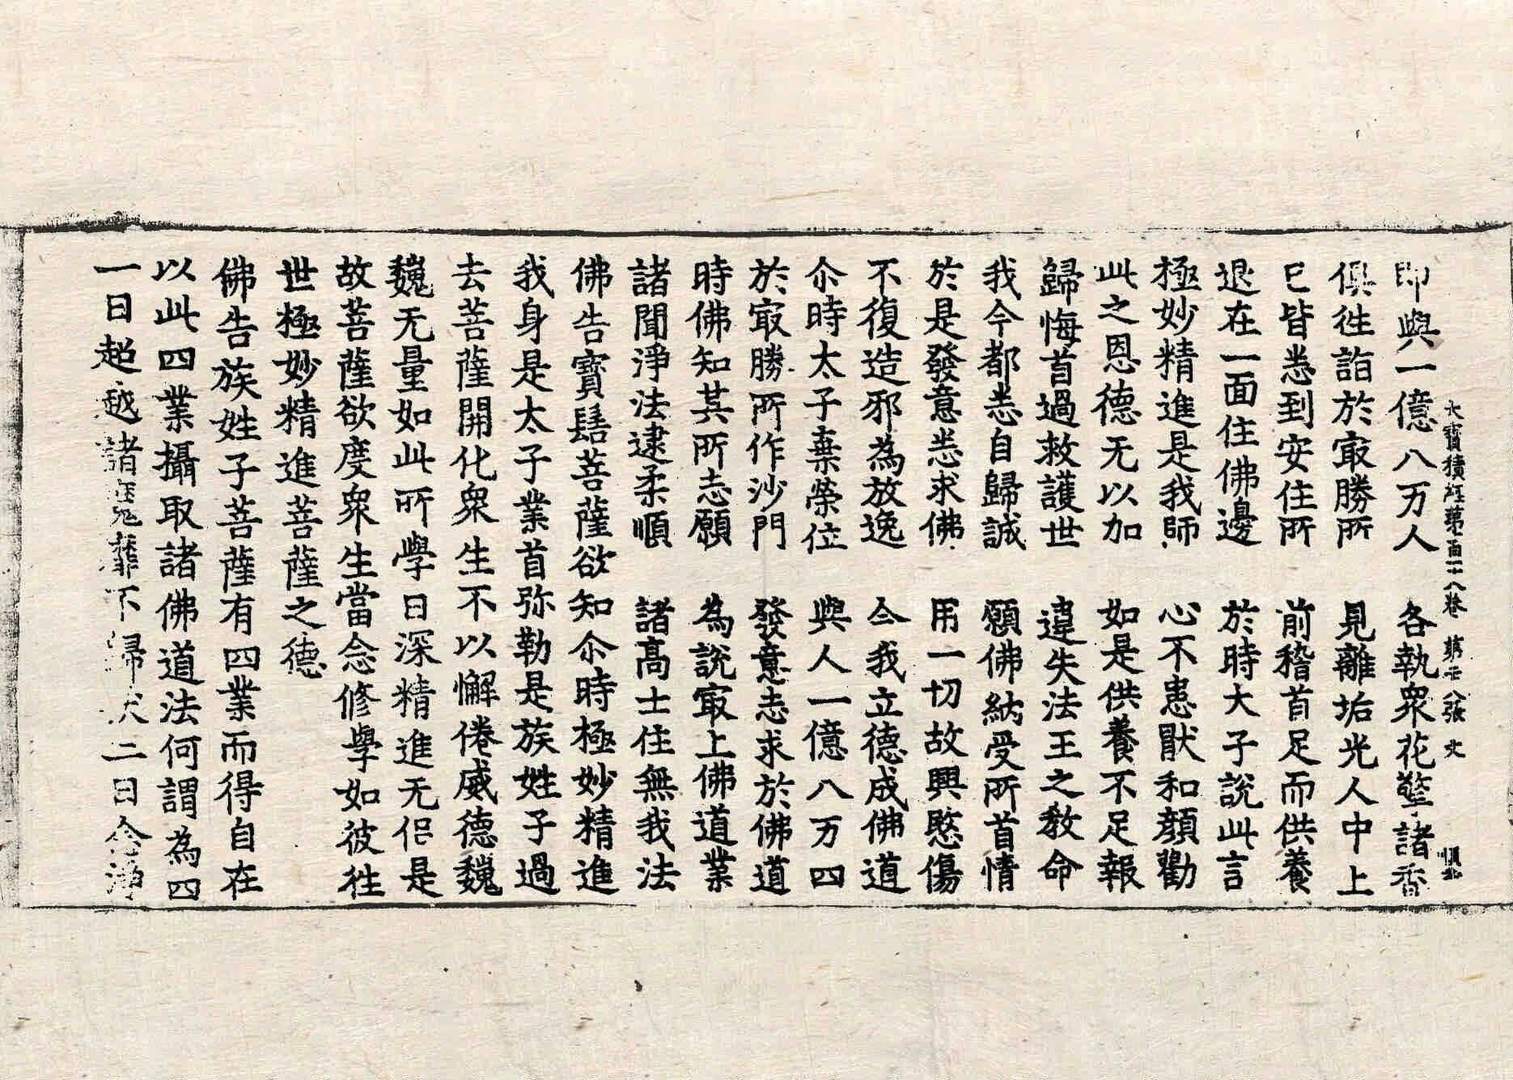 即與一億八万人　各執衆花瑿諸香
俱徃詣於㝡勝所　見離垢光人中上
已皆悉到安住所　前稽首足而供養
退在一面住佛邊　於時大子說此言
極妙精進是我師　心不恚猒和顔勸
此之恩德无以加　如是供養不足報
歸悔首過救護世　違失法王之教命
我今都悉自歸誠　願佛納受所首情
於是發意悉求佛　用一切故興愍傷
不復造邪為放逸　令我立德成佛道
尒時太子棄榮位　與人一億八万四
於㝡勝所作沙門　發意志求於佛道
時佛知其所志願　為說㝡上佛道業
諸聞淨法逮柔順　諸髙士住無我法
佛告寳髻菩薩欲知尒時極妙精進
我身是太子業首弥勒是族姓子過
去菩薩開化衆生不以懈倦威德巍
巍无量如此所學日深精進无侣是
故菩薩欲度衆生當念修學如彼徃
世極妙精進菩薩之德
佛告族姓子菩薩有四業而得自在
以此四業攝取諸佛道法何謂為四
一日超越諸魔靡不歸伏二日念淨